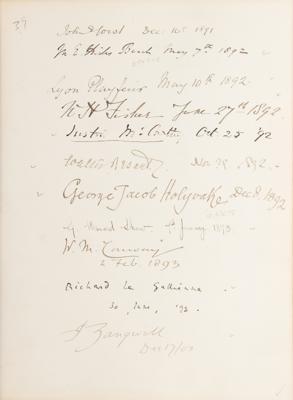 39
John Gorst Dec 10th 1891
Wm E Hicks Beach May 7th 1892
Lyon Playfair May 10th 1892
W H Fisher June 27th 1892
Justin McCarthy Oct 25 '92
Walter Besant Nov 29 1892.
George Jacob Holyoake Dec 8, 1892
G. Bernard Shaw. Jany 1893.
W. M. Conway
2 Feb. 1893
Richard Le Gallienne
30, June, '93.
I Zangwill
Dec 17/00